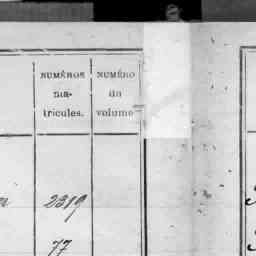 NUMÉROS
ma-
tricules.
NUMÉRO
du
volume
2319
77